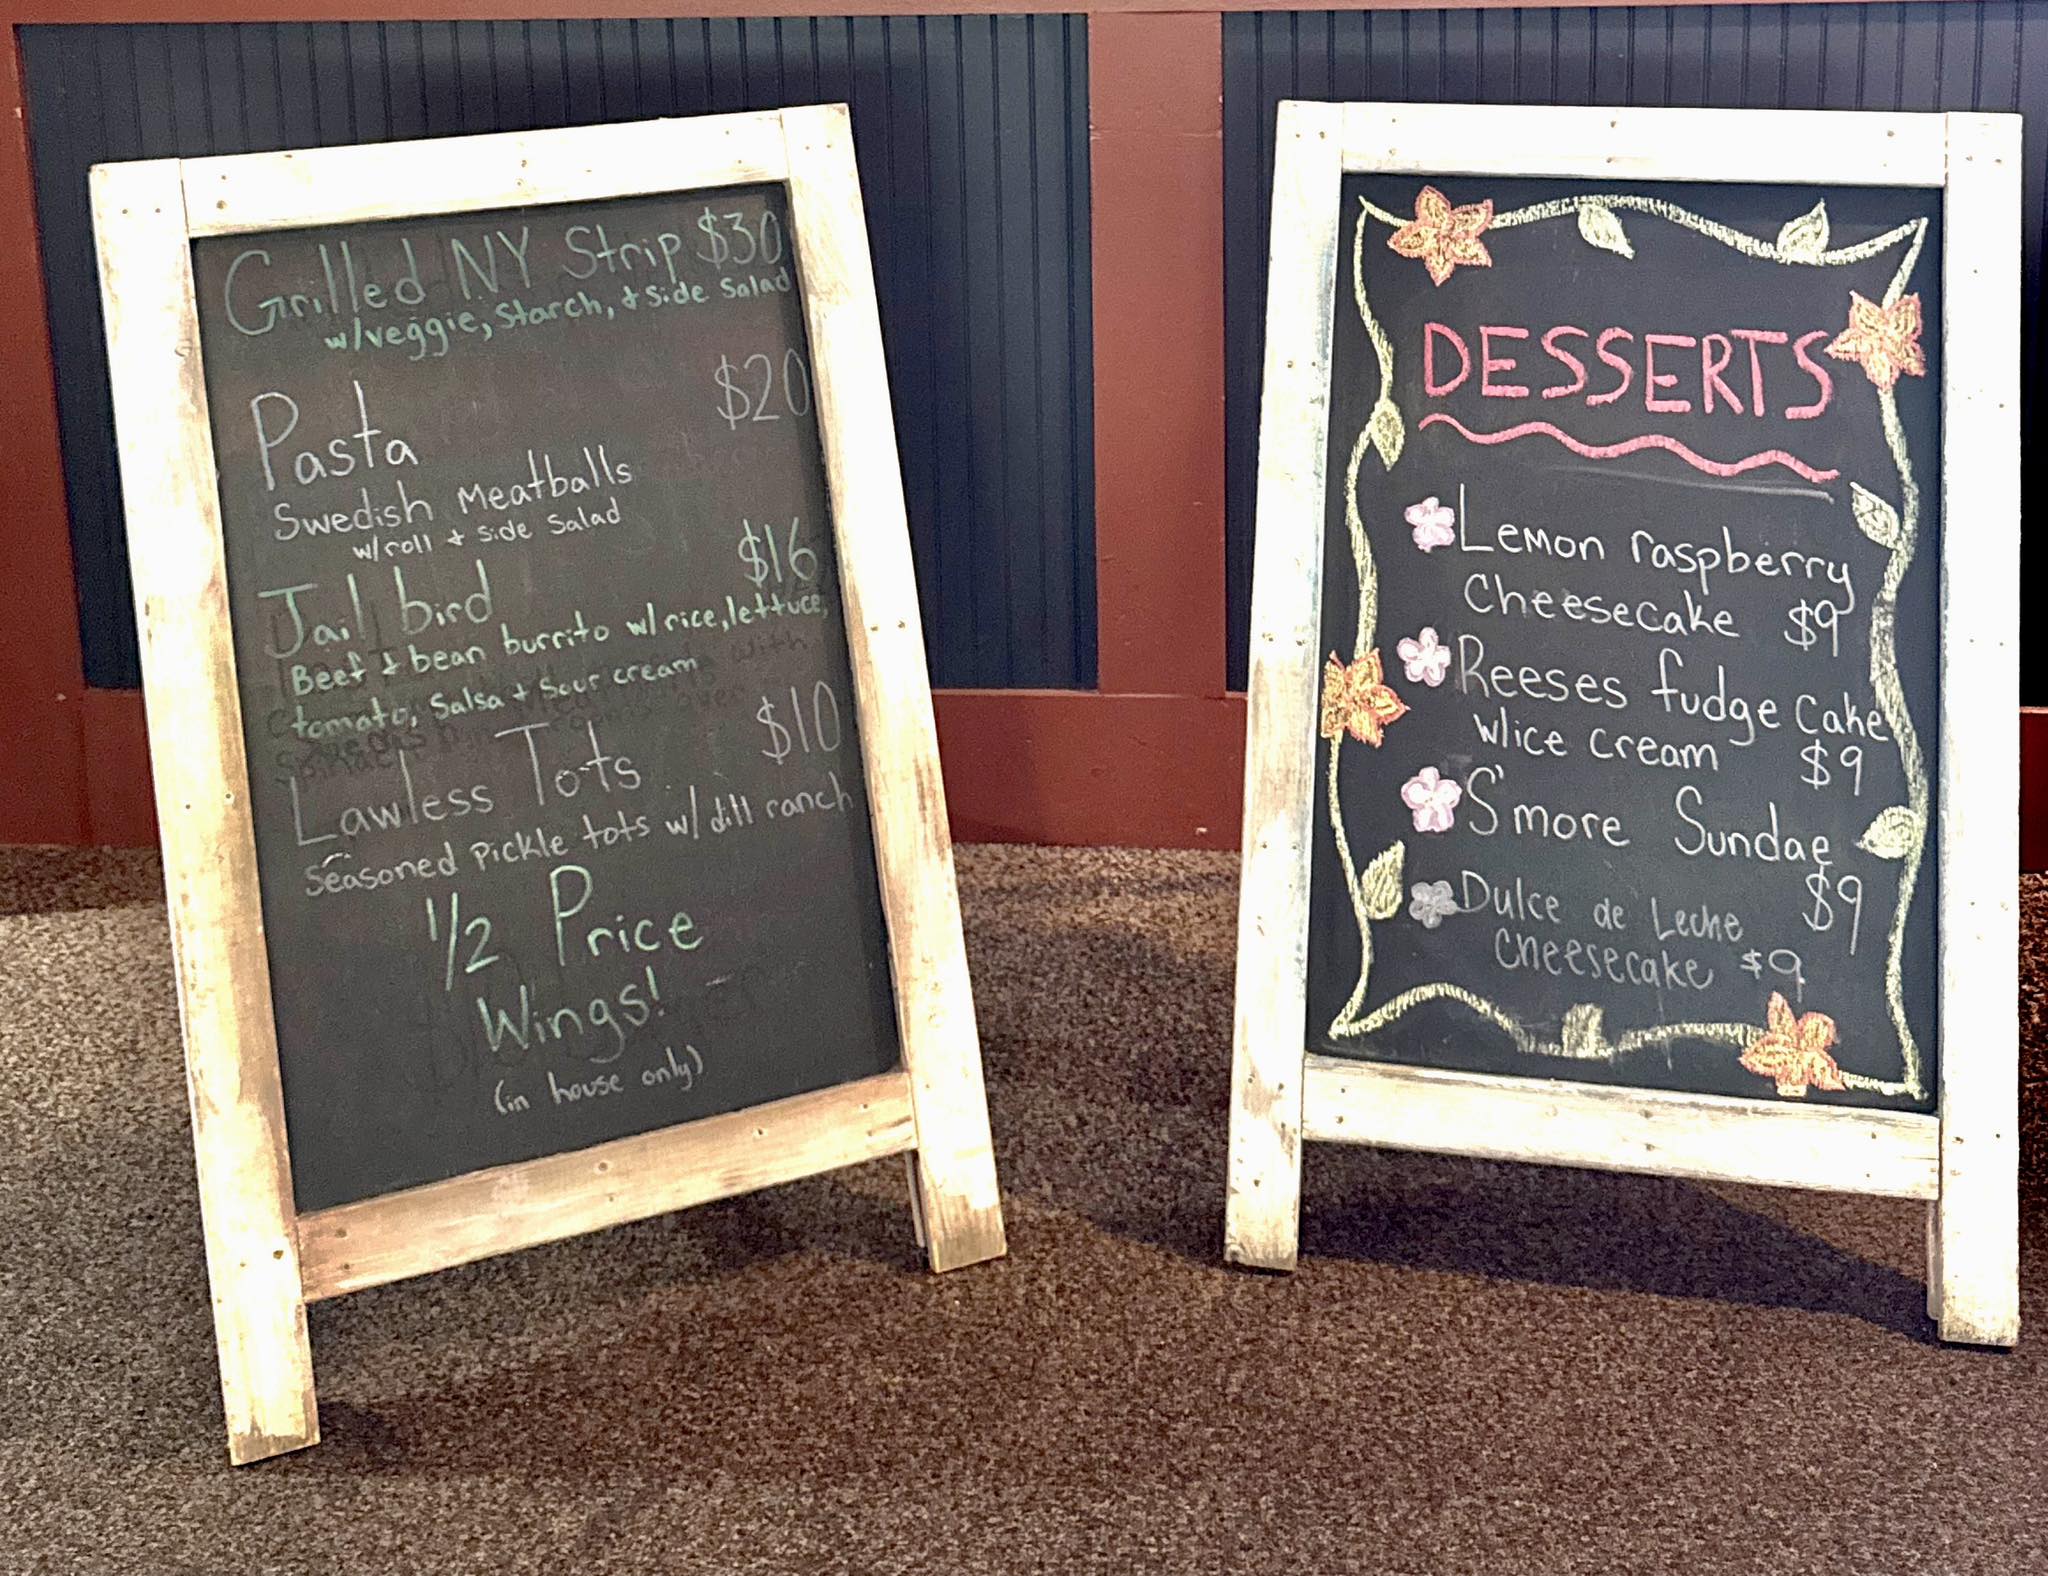 Grilled NY Strip $30
w/veggie, starch, + side salad
Pasta $20
Swedish Meatballs
w/roll + side salad
Jail bird $16
Beef + bean burrito w/rice, lettuce,
tomato, salsa + sour cream
Lawless Tots $10
seasoned pickle tots w/ dill ranch
1/2 Price
Wings!
(in house only)
DESSERTS
Lemon raspberry
Cheesecake $9
Reeses fudge cake
w/ice cream $9
S'more Sundae
$9
Dulce de Leche
Cheesecake $9